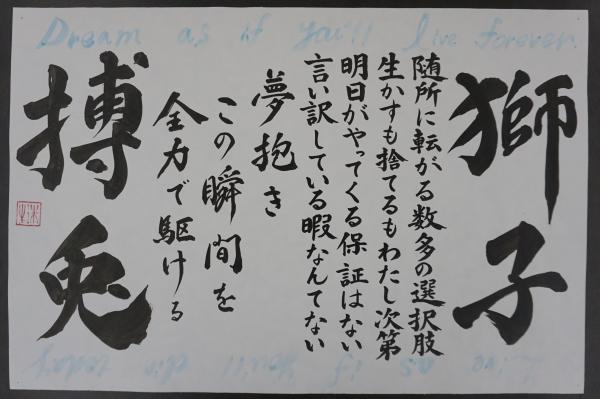 Dream as if you'll live forever.
獅子
随所に転がる数多の選択肢
生かすも捨てるもわたし次第
明日がやってくる保証はない
言い訳している暇なんてない
夢抱き
この瞬間を
全力で駆ける
搏兎
Live as if you'll die today